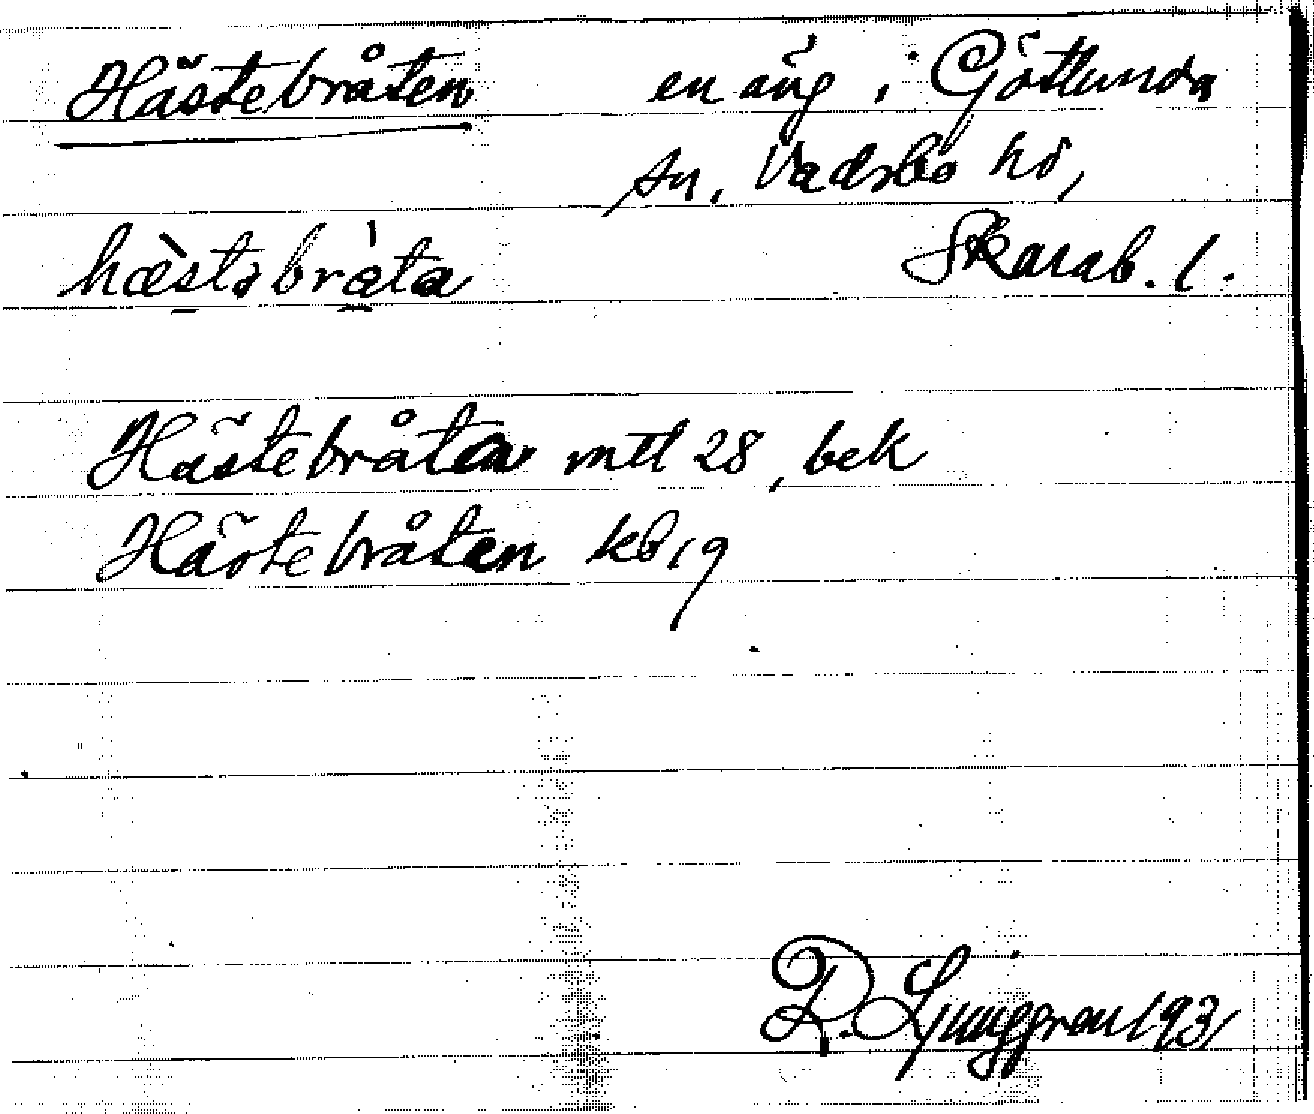 Hästebråten en äng i Götlunda
sn, Vadsbo hd,
hæ̀stəbrå̀ta Skarab. l.
Hästebråten mtl 28, bek
Hästebråten kb 19
R. Ljunggren 1931